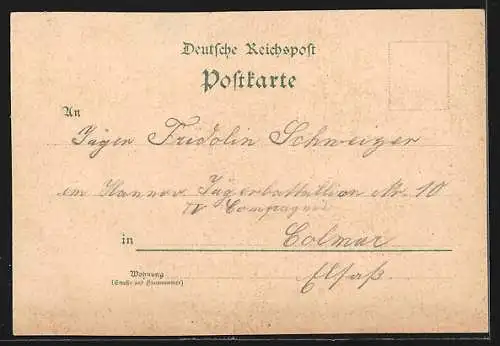 Deutsche Reichspost
Postkarte
An
Jäger Fridolin Schweizer
im Hannov. Jägerbattallion Nr. 10
IV Compagnie
in Colmar
Wohnung
(Straße und Hausnummer)
Elsaß.